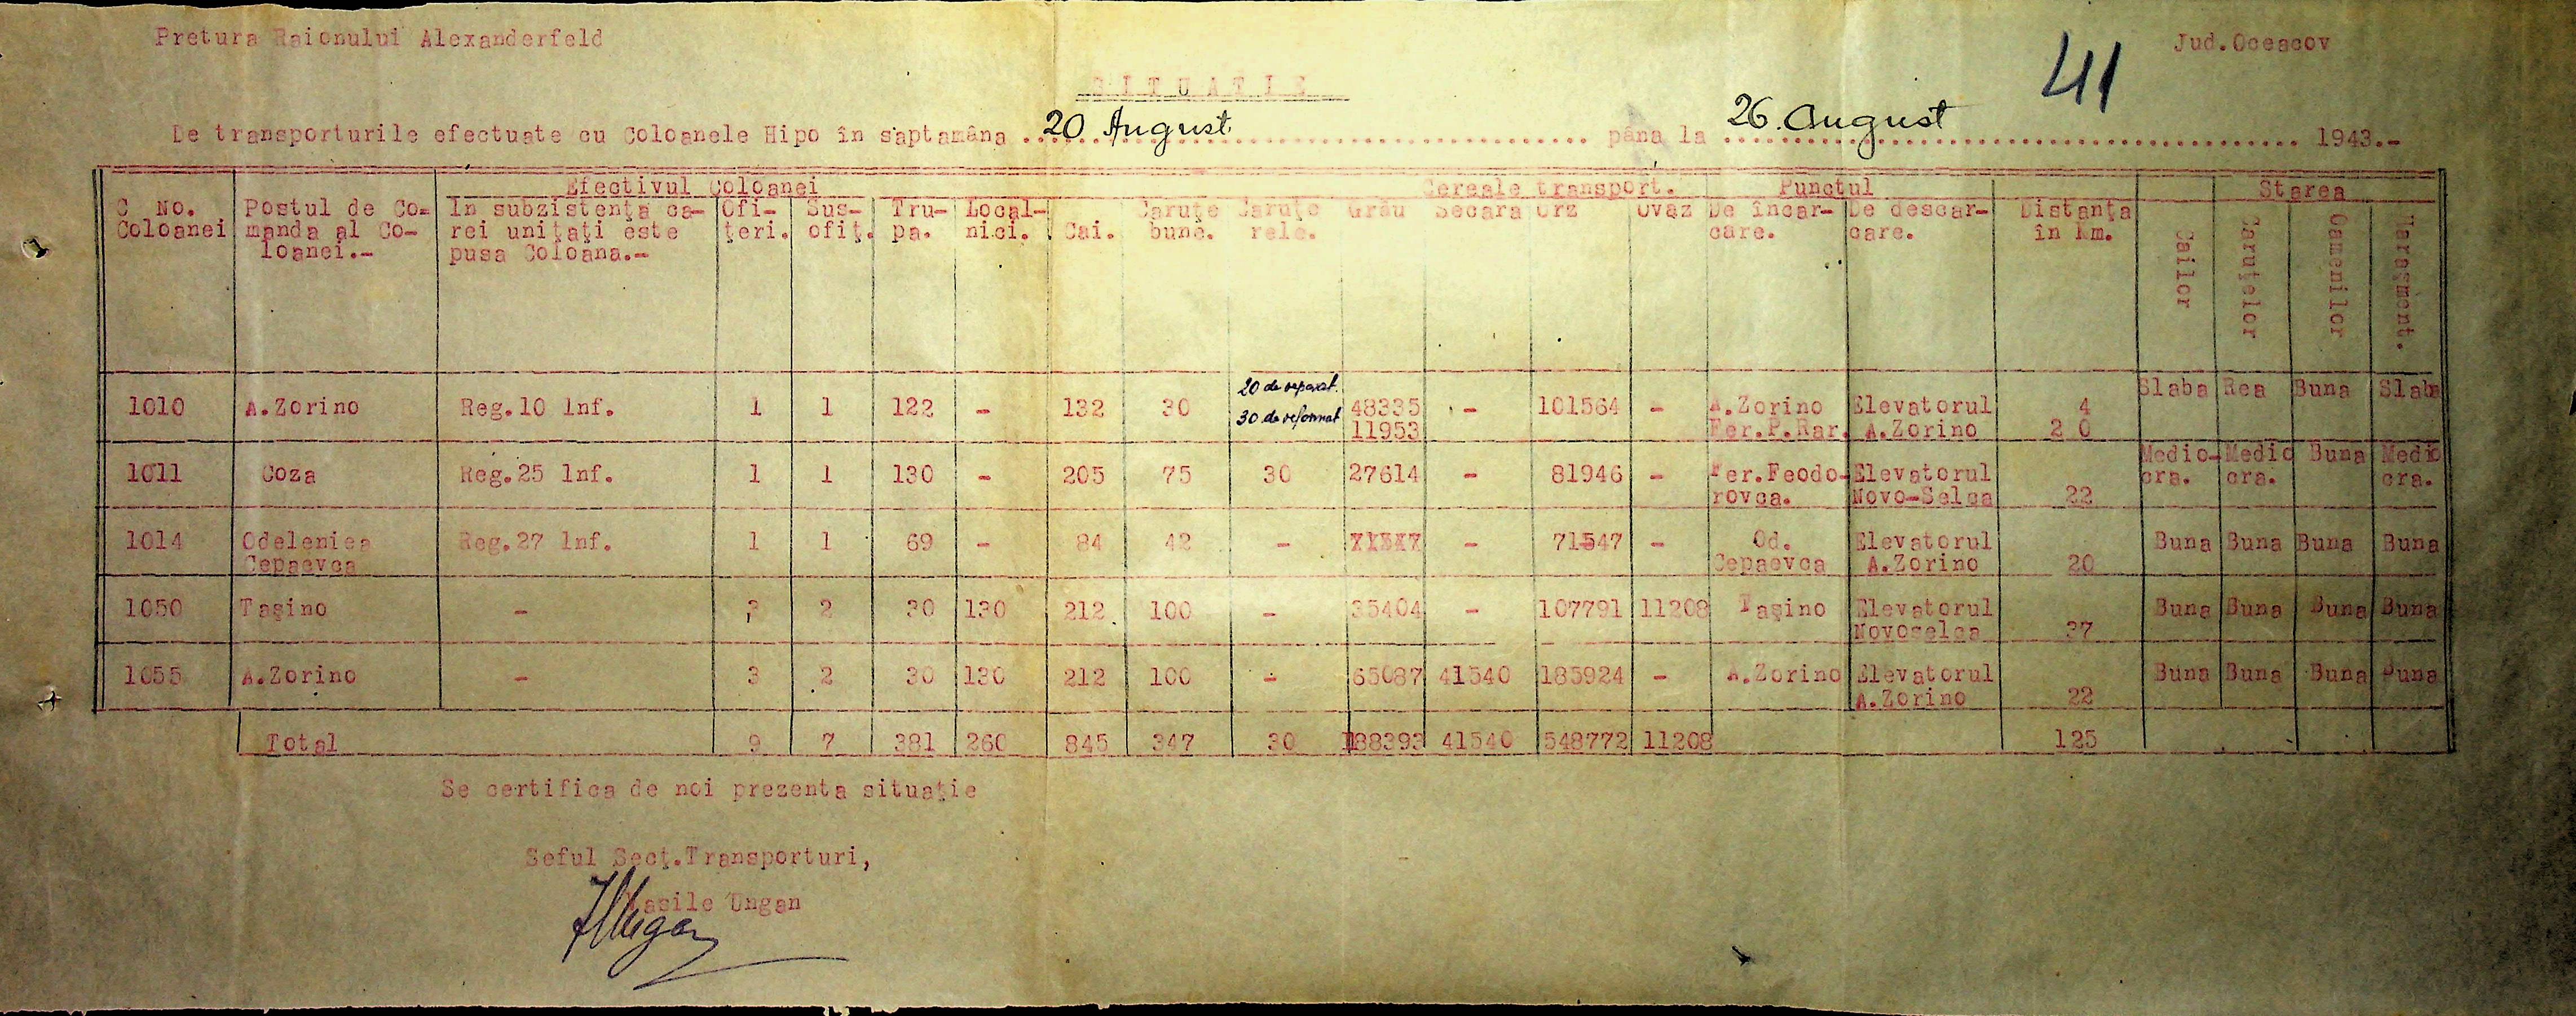 Pretura Raionului Alexanderfeld
Jud.Oceacov
41
SITUATIE
De transporturile efectuate cu Coloanele Hipo în saptamâna 20 August pâna la 26. August 1943.-
Efectivul Coloanei Cereale transport. Punctul Starea
No. Coloanei
Postul de Co-manda al Co-loanei.-
In subzistenţa ca-rei unitaţi este pusa Coloana.-
Ofi-ţeri.
Sus-ofiţ.
Tru-pa.
Local-nici.
Cai.
Caruţe bune.
Caruţe rele.
Grâu
Secara
Orz
Ovăz
De încar-care.
De descar-care.
Distanţa în Km.
Cailor
Caruţelor
Oamenilor
1010 A.Zorino Reg.10 Inf. 1 1 122 - 132 30 20 de reparat. 30 de reformat 48335 11953 - 101564 - A.Zorino Fer.P.Rar. Elevatorul A.Zorino 4 20 Slaba Rea Buna Slaba
1011 Coza Reg.25 Inf. 1 1 130 - 205 75 30 27614 - 81946 - Fer.Feodo-rovca. Elevatorul Novo-Selca 22 Medio-cra. Medio cra. Buna Medio cra.
1014 Odeleniea Cepaevca Reg.27 Inf. 1 1 69 - 84 42 - - 71547 - Od. Cepaevca Elevatorul A.Zorino 20 Buna Buna Buna Buna
1050 Taşino - 3 2 30 130 212 100 - 35404 - 107791 11208 Taşino Elevatorul Novoselca 37 Buna Buna Buna Buna
1055 A.Zorino - 3 2 30 130 212 100 - 65087 41540 185924 - A.Zorino Elevatorul A.Zorino 22 Buna Buna Buna Buna
Total 9 7 381 260 845 347 30 188393 41540 548772 11208 125
Se certifica de noi prezenta situaţie
Seful Secţ.Transporturi,
Vasile Ungan